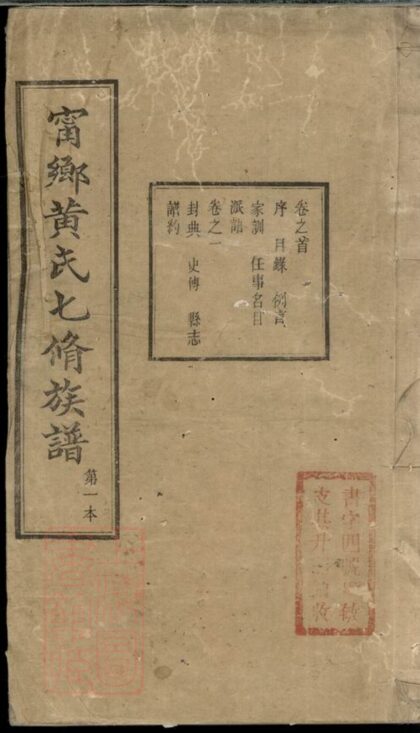 甯鄉黃氏七脩族譜
第一本
卷之首
序 目錄 例言
家訓 任事名目
派語
卷之一
封典 史傳 縣志
譜約
書字
支其升 收